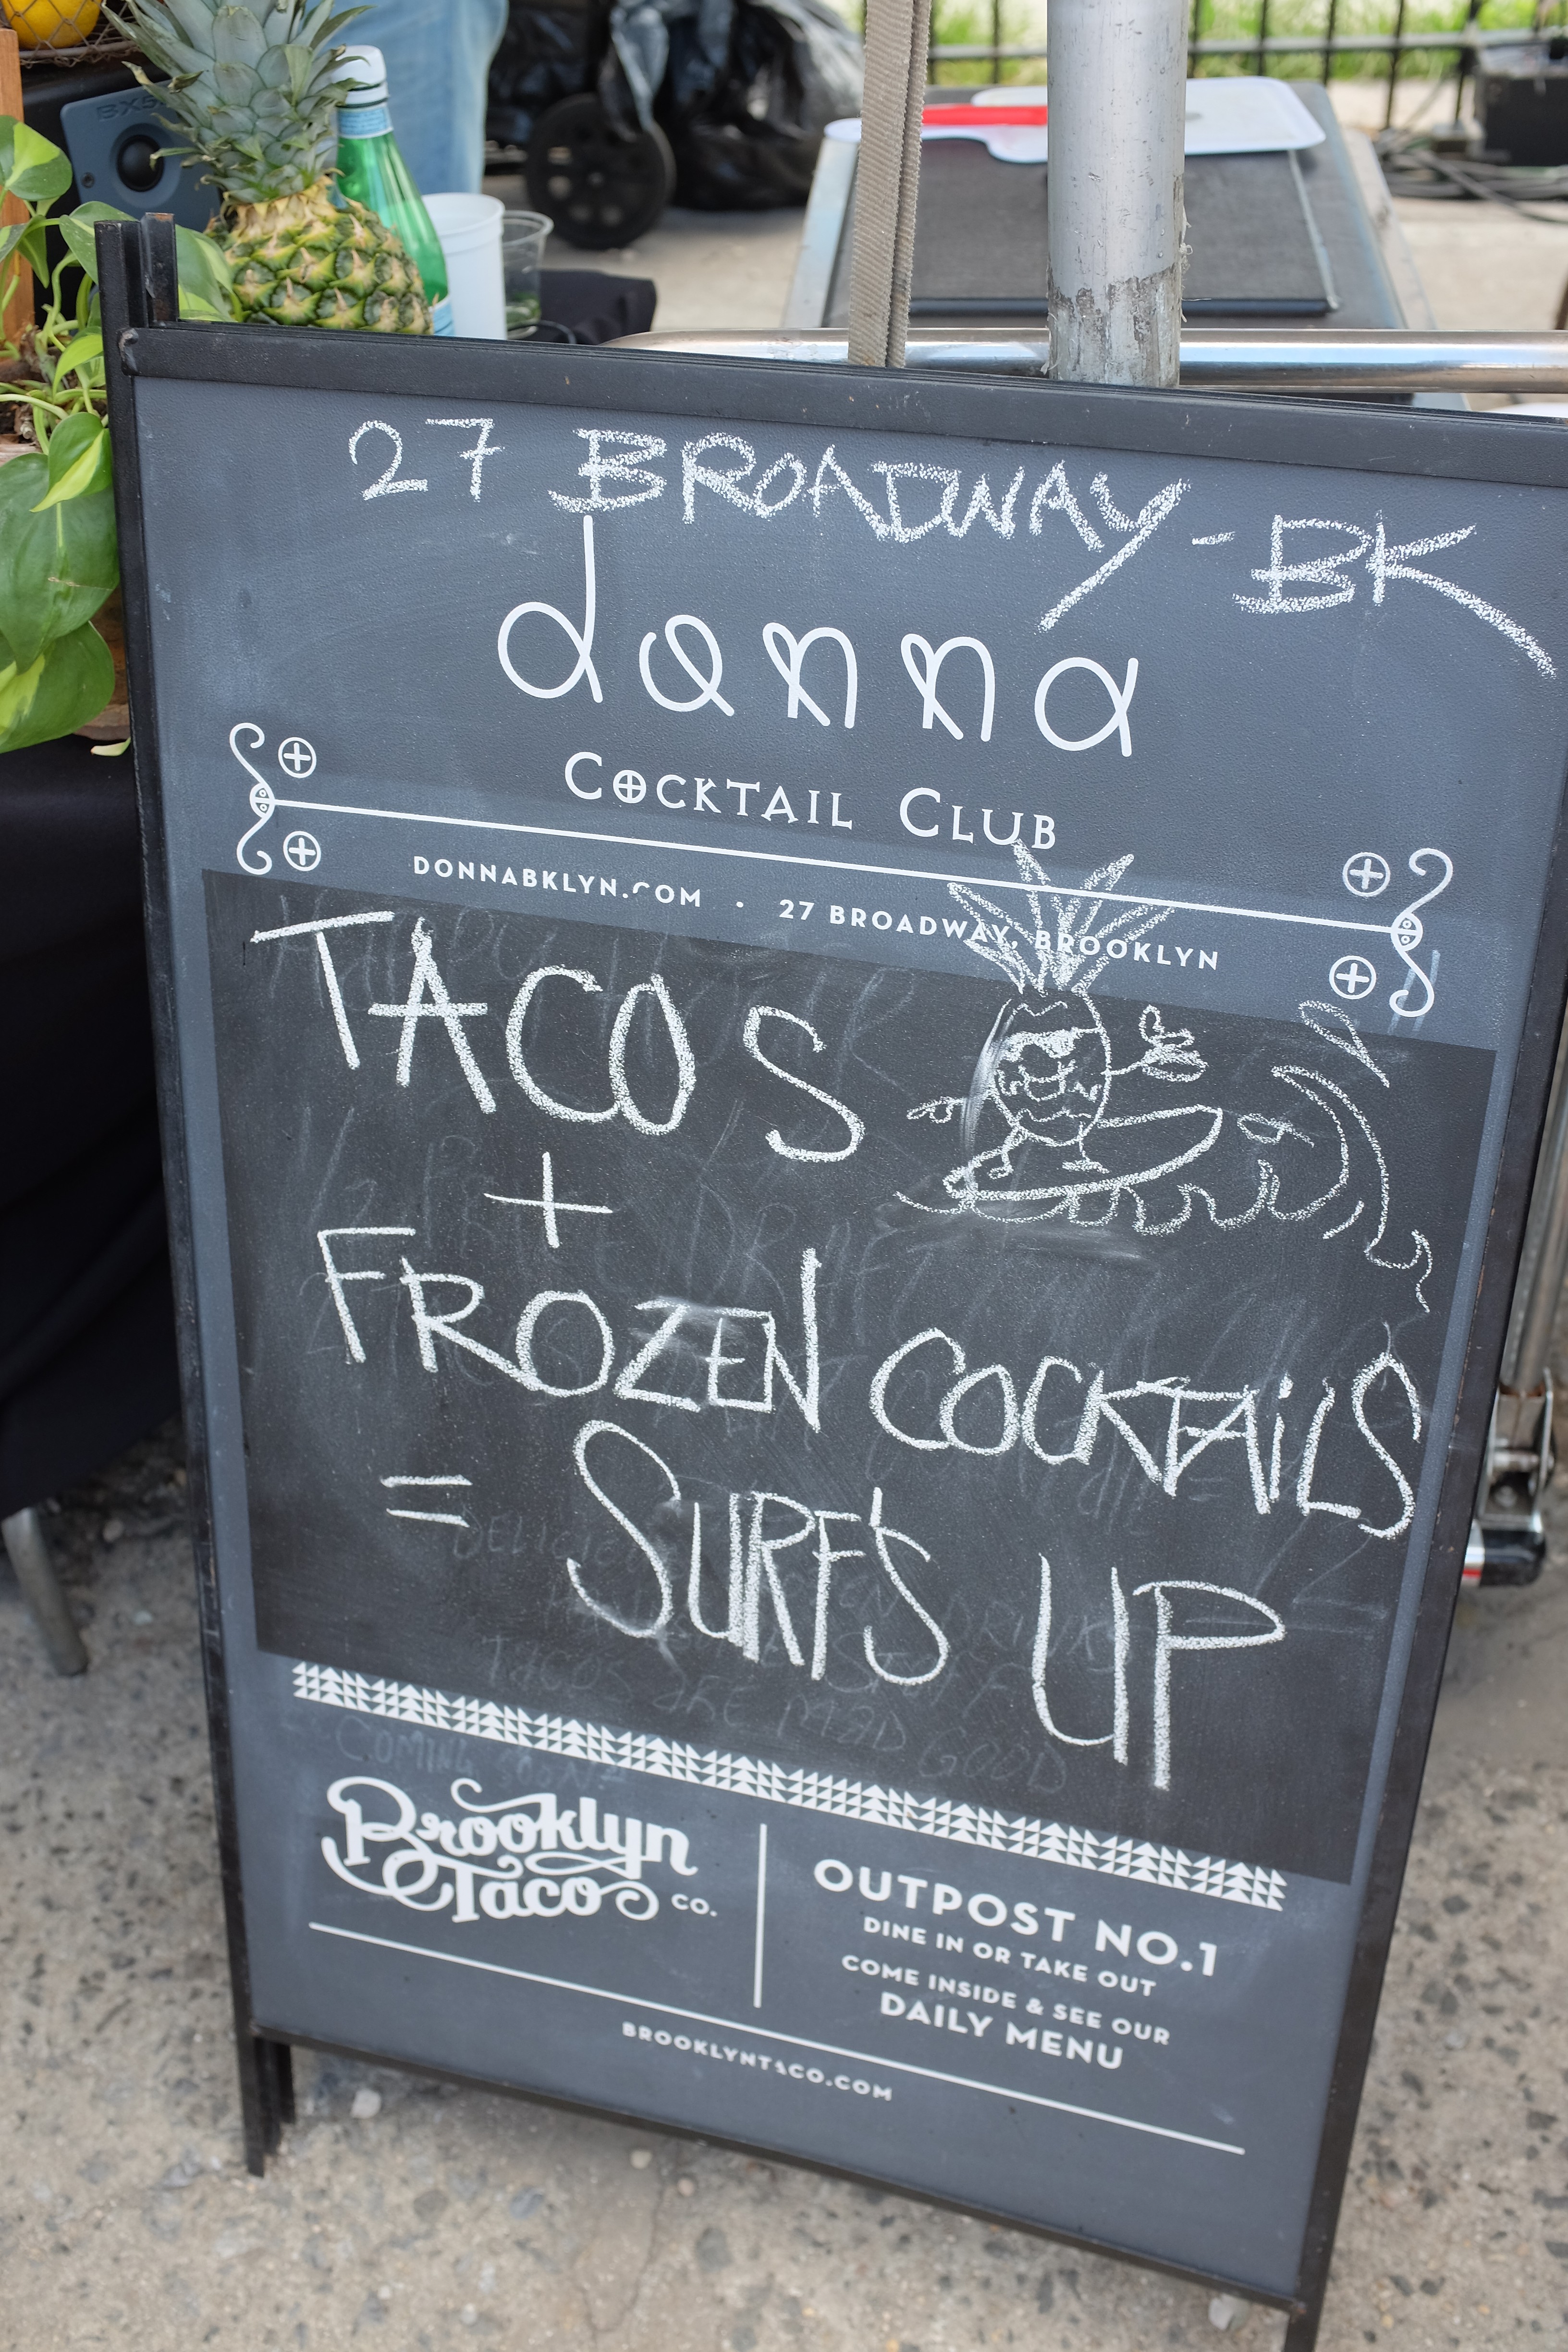 27 BROADWAY - BK
donna
COCKTAIL CLUB
DONNABKLYN.COM • 27 BROADWAY, BROOKLYN
TACOS
+
FROZEN COCKTAILS
= SURF'S UP
TACOS ARE MAD GOOD
COMING SOON
Brooklyn
Taco CO.
OUTPOST NO.1
DINE IN OR TAKE OUT
COME INSIDE & SEE OUR
DAILY MENU
BROOKLYNTACO.COM